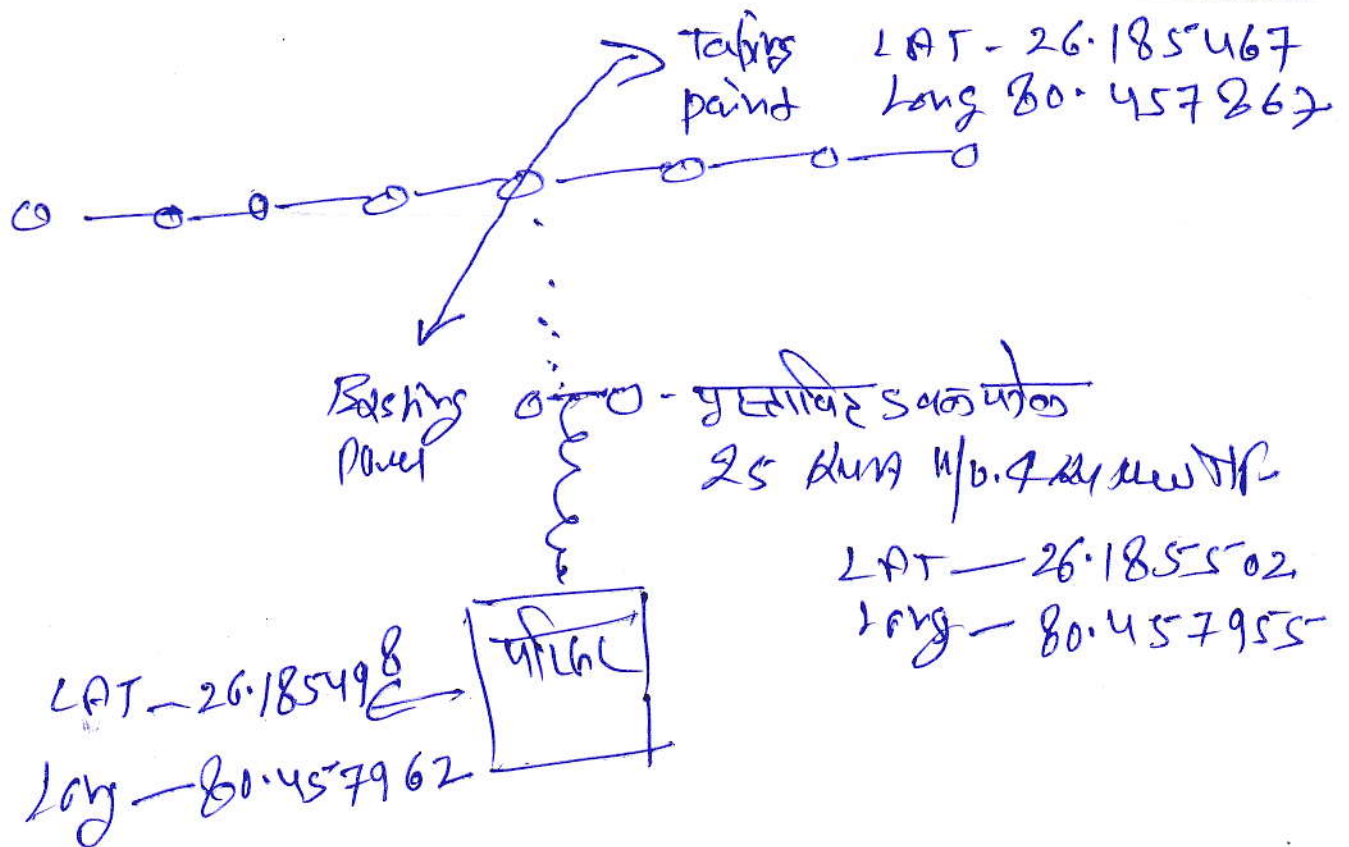 Taping LAT - 26.185467
paind Long 80.457867
Exsting
power
प्रस्तावित डबल पोल
25 KVA 11/0.4 KV new T/F
LAT — 26.185502
Long — 80.457955
परिसर
LAT — 26.185498
Long — 80.457962